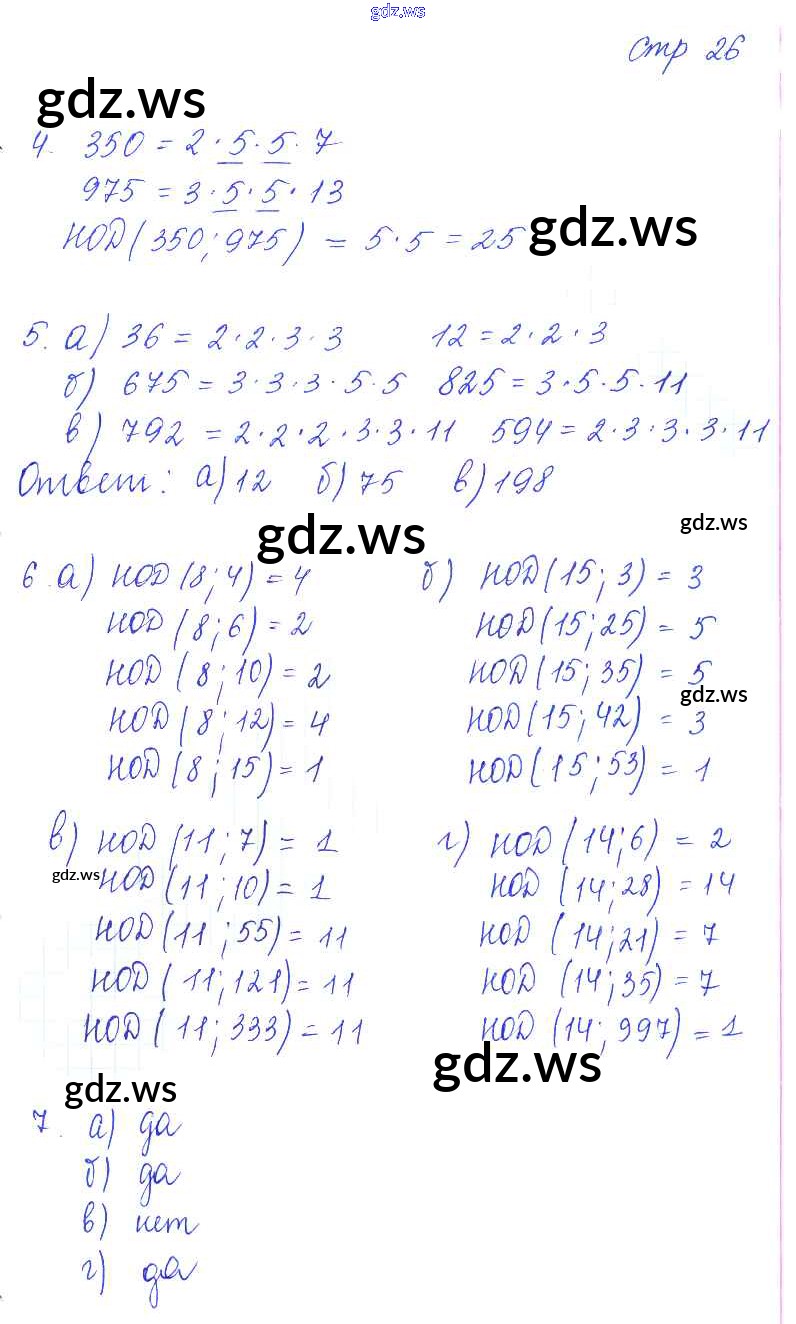 gdz.ws
стр 26
gdz.ws
4. 350 = 2 · 5 · 5 · 7
975 = 3 · 5 · 5 · 13
НОД (350; 975) = 5 · 5 = 25
gdz.ws
5. а) 36 = 2 · 2 · 3 · 3 12 = 2 · 2 · 3
б) 675 = 3 · 3 · 3 · 5 · 5 825 = 3 · 5 · 5 · 11
в) 792 = 2 · 2 · 2 · 3 · 3 · 11 594 = 2 · 3 · 3 · 3 · 11
Ответ: а) 12 б) 75 в) 198
gdz.ws
gdz.ws
6. а) НОД (8; 4) = 4
НОД (8; 6) = 2
НОД (8; 10) = 2
НОД (8; 12) = 4
НОД (8; 15) = 1
б) НОД (15; 3) = 3
НОД (15; 25) = 5
НОД (15; 35) = 5
gdz.ws
НОД (15; 42) = 3
НОД (15; 53) = 1
в) НОД (11; 7) = 1
gdz.ws
НОД (11; 10) = 1
НОД (11; 55) = 11
НОД (11; 121) = 11
НОД (11; 333) = 11
г) НОД (14; 6) = 2
НОД (14; 28) = 14
НОД (14; 21) = 7
НОД (14; 35) = 7
НОД (14; 997) = 1
gdz.ws
gdz.ws
7. а) да
б) да
в) нет
г) да